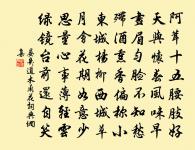 阿茸十五腰肢好
天與懷春風味早
畫眉勻臉不知愁
殢酒熏香偏稱小
東城楊柳西城草
月會花期如意少
思量心事薄輕雲
綠鏡臺前還自笑
晏幾道木蘭花詞典網
集